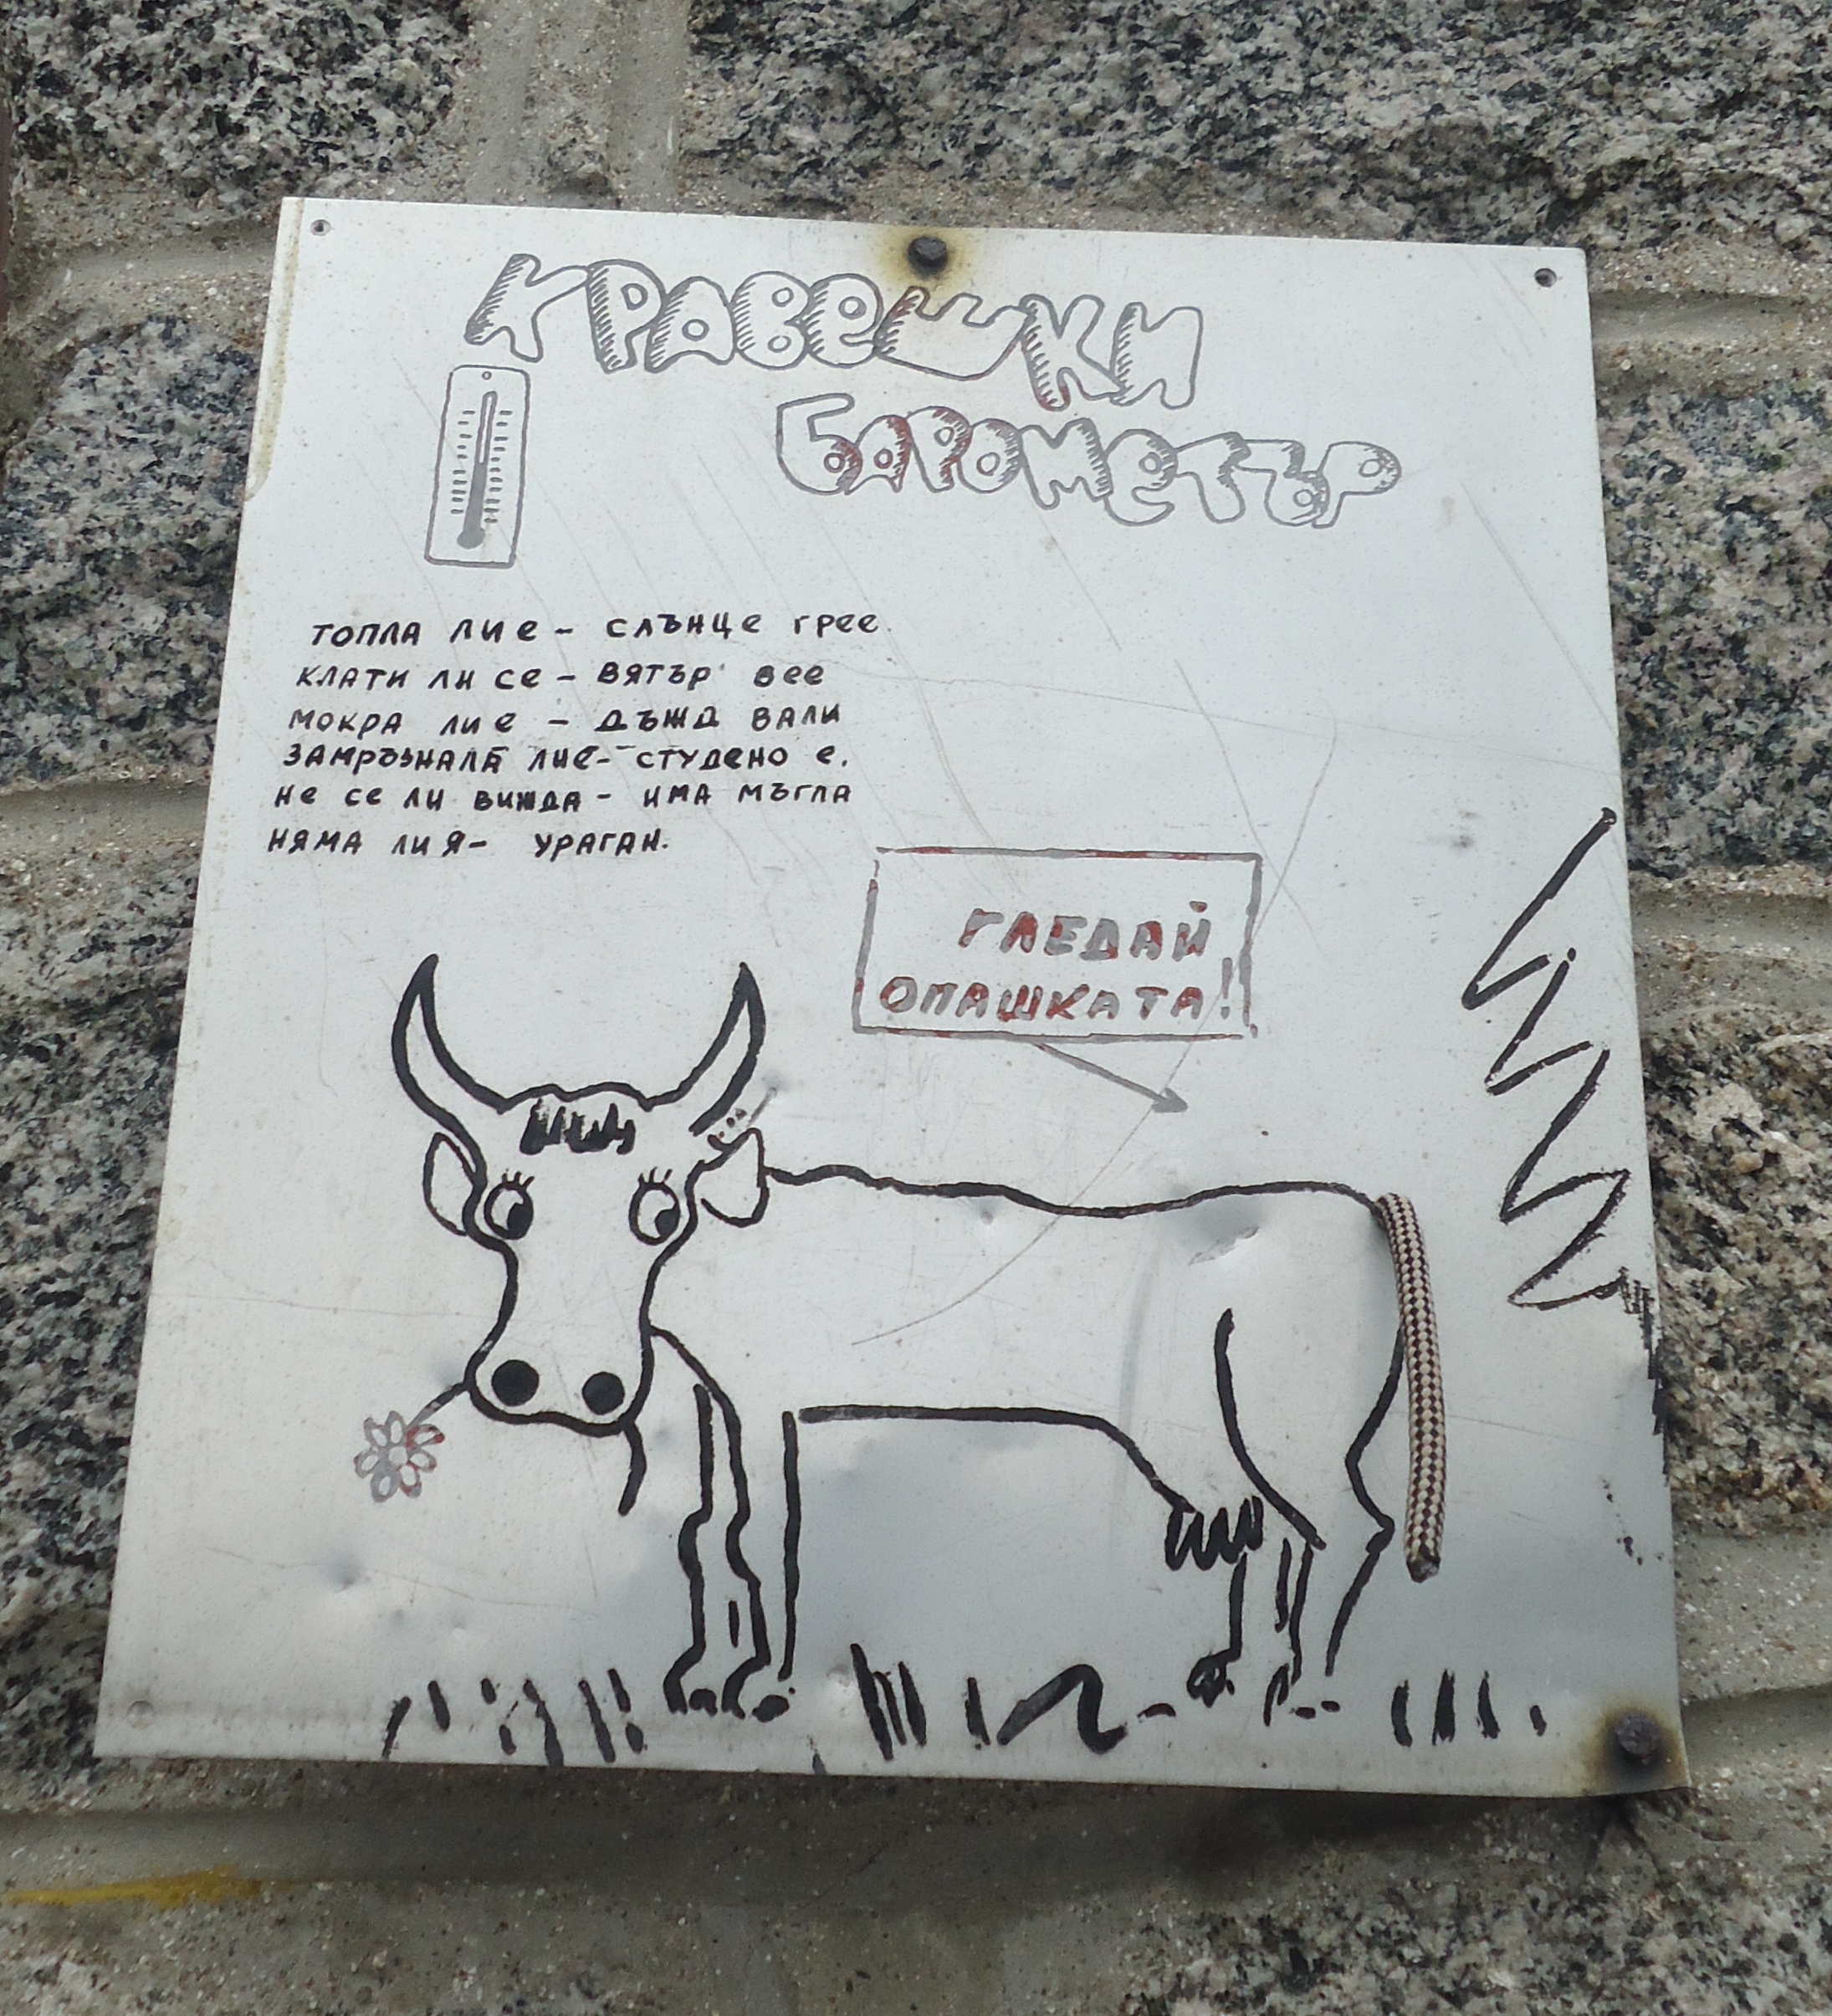 КРАВЕШКИ
БАРОМЕТЪР
ТОПЛА ЛИ Е - СЛЪНЦЕ ГРЕЕ.
КЛАТИ ЛИ СЕ - ВЯТЪР ВЕЕ
МОКРА ЛИ Е - ДЪЖД ВАЛИ
ЗАМРЪЗНАЛА ЛИ Е - СТУДЕНО Е.
НЕ СЕ ЛИ ВИЖДА - ИМА МЪГЛА
НЯМА ЛИ Я - УРАГАН.
ГЛЕДАЙ
ОПАШКАТА!